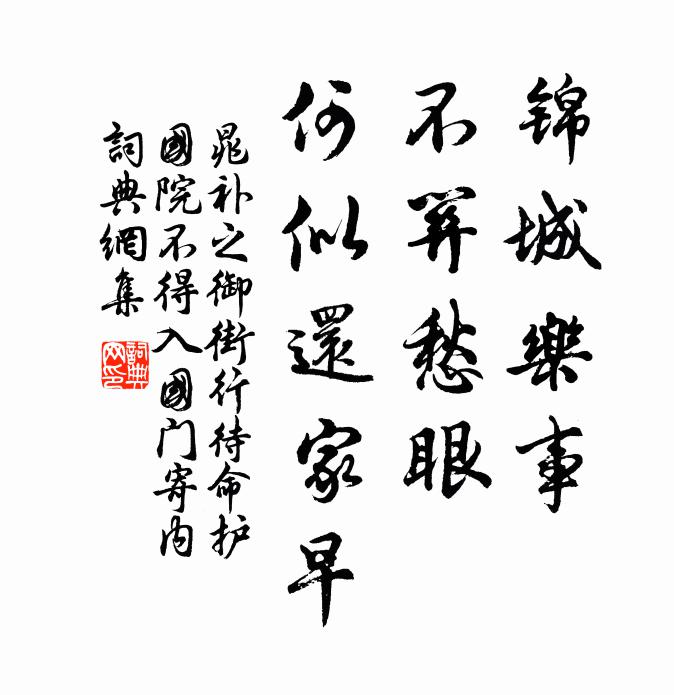 锦城樂事
不關愁眼
何似還家早
晁补之御街行待命护
國院不得入國门寄内
詞典網集
詞典网印